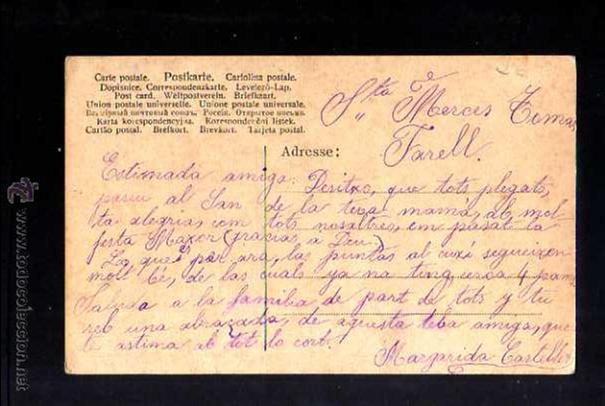 Carte postale. Postkarte. Cartolina postale.
Dopisnice. Correspondenzkarte. Levelező-Lap.
Post card. Weltpostverein. Briefkaart.
Union postale universelle. Unione postale universale.
Всемірный почтовый союзъ. Россія. Открытое письмо.
Karta korespondencyjna. Korespondenční listek.
Cartão postal. Brefkort. Brevkort. Tarjeta postal.
Sta Merces Tomas
Farell.
Adresse:
Estimada amiga: Desitxo, que tots plegats,
paseu al San de la teva mamá, ab mol-
ta alegria, com tots nosaltres, em pasat la
festa Major (gracias a Deu).
Lo que es per ara, las puntas al cuxí segueixen
molt bé, de las cuals ya na ting cerca 4 pams
Saluda a la familia de part de tots y tu
reb una abraçada, de aquesta teba amiga, que
te astima ab tot lo cort.
Margarida Castells
www.todocoleccion.net